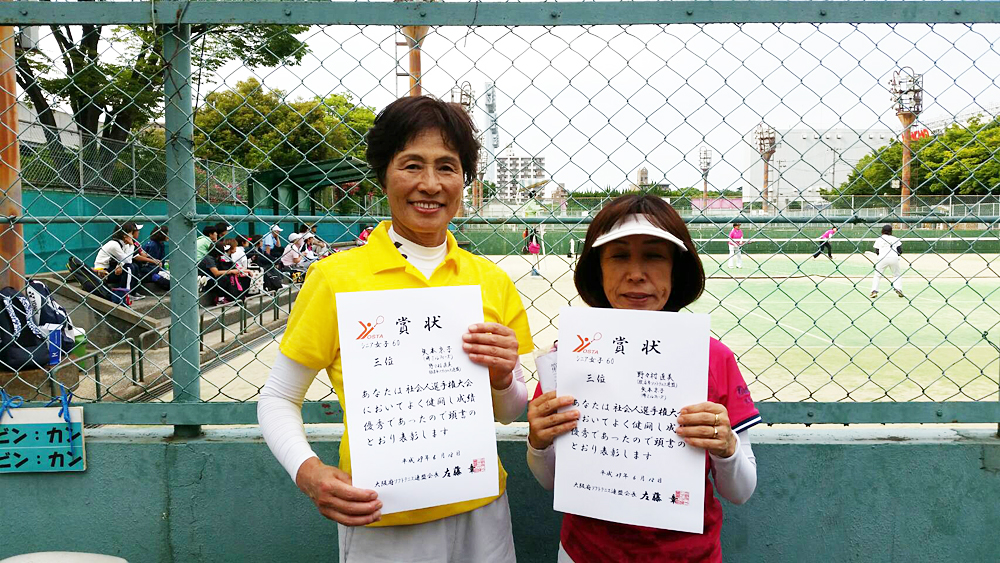 賞状
OSTA
シニア女子60
三位
矢本京子
あなたは社会人選手権大会
においてよく健闘し成績
優秀であったので頭書の
とおり表彰します
平成29年6月18日
大阪府ソフトテニス連盟会長
賞状
OSTA
シニア女子60
三位
野々村直美
あなたは社会人選手権大会
においてよく健闘し成績
優秀であったので頭書の
とおり表彰します
大阪府ソフトテニス連盟会長
ビン:カン
ビン:カン